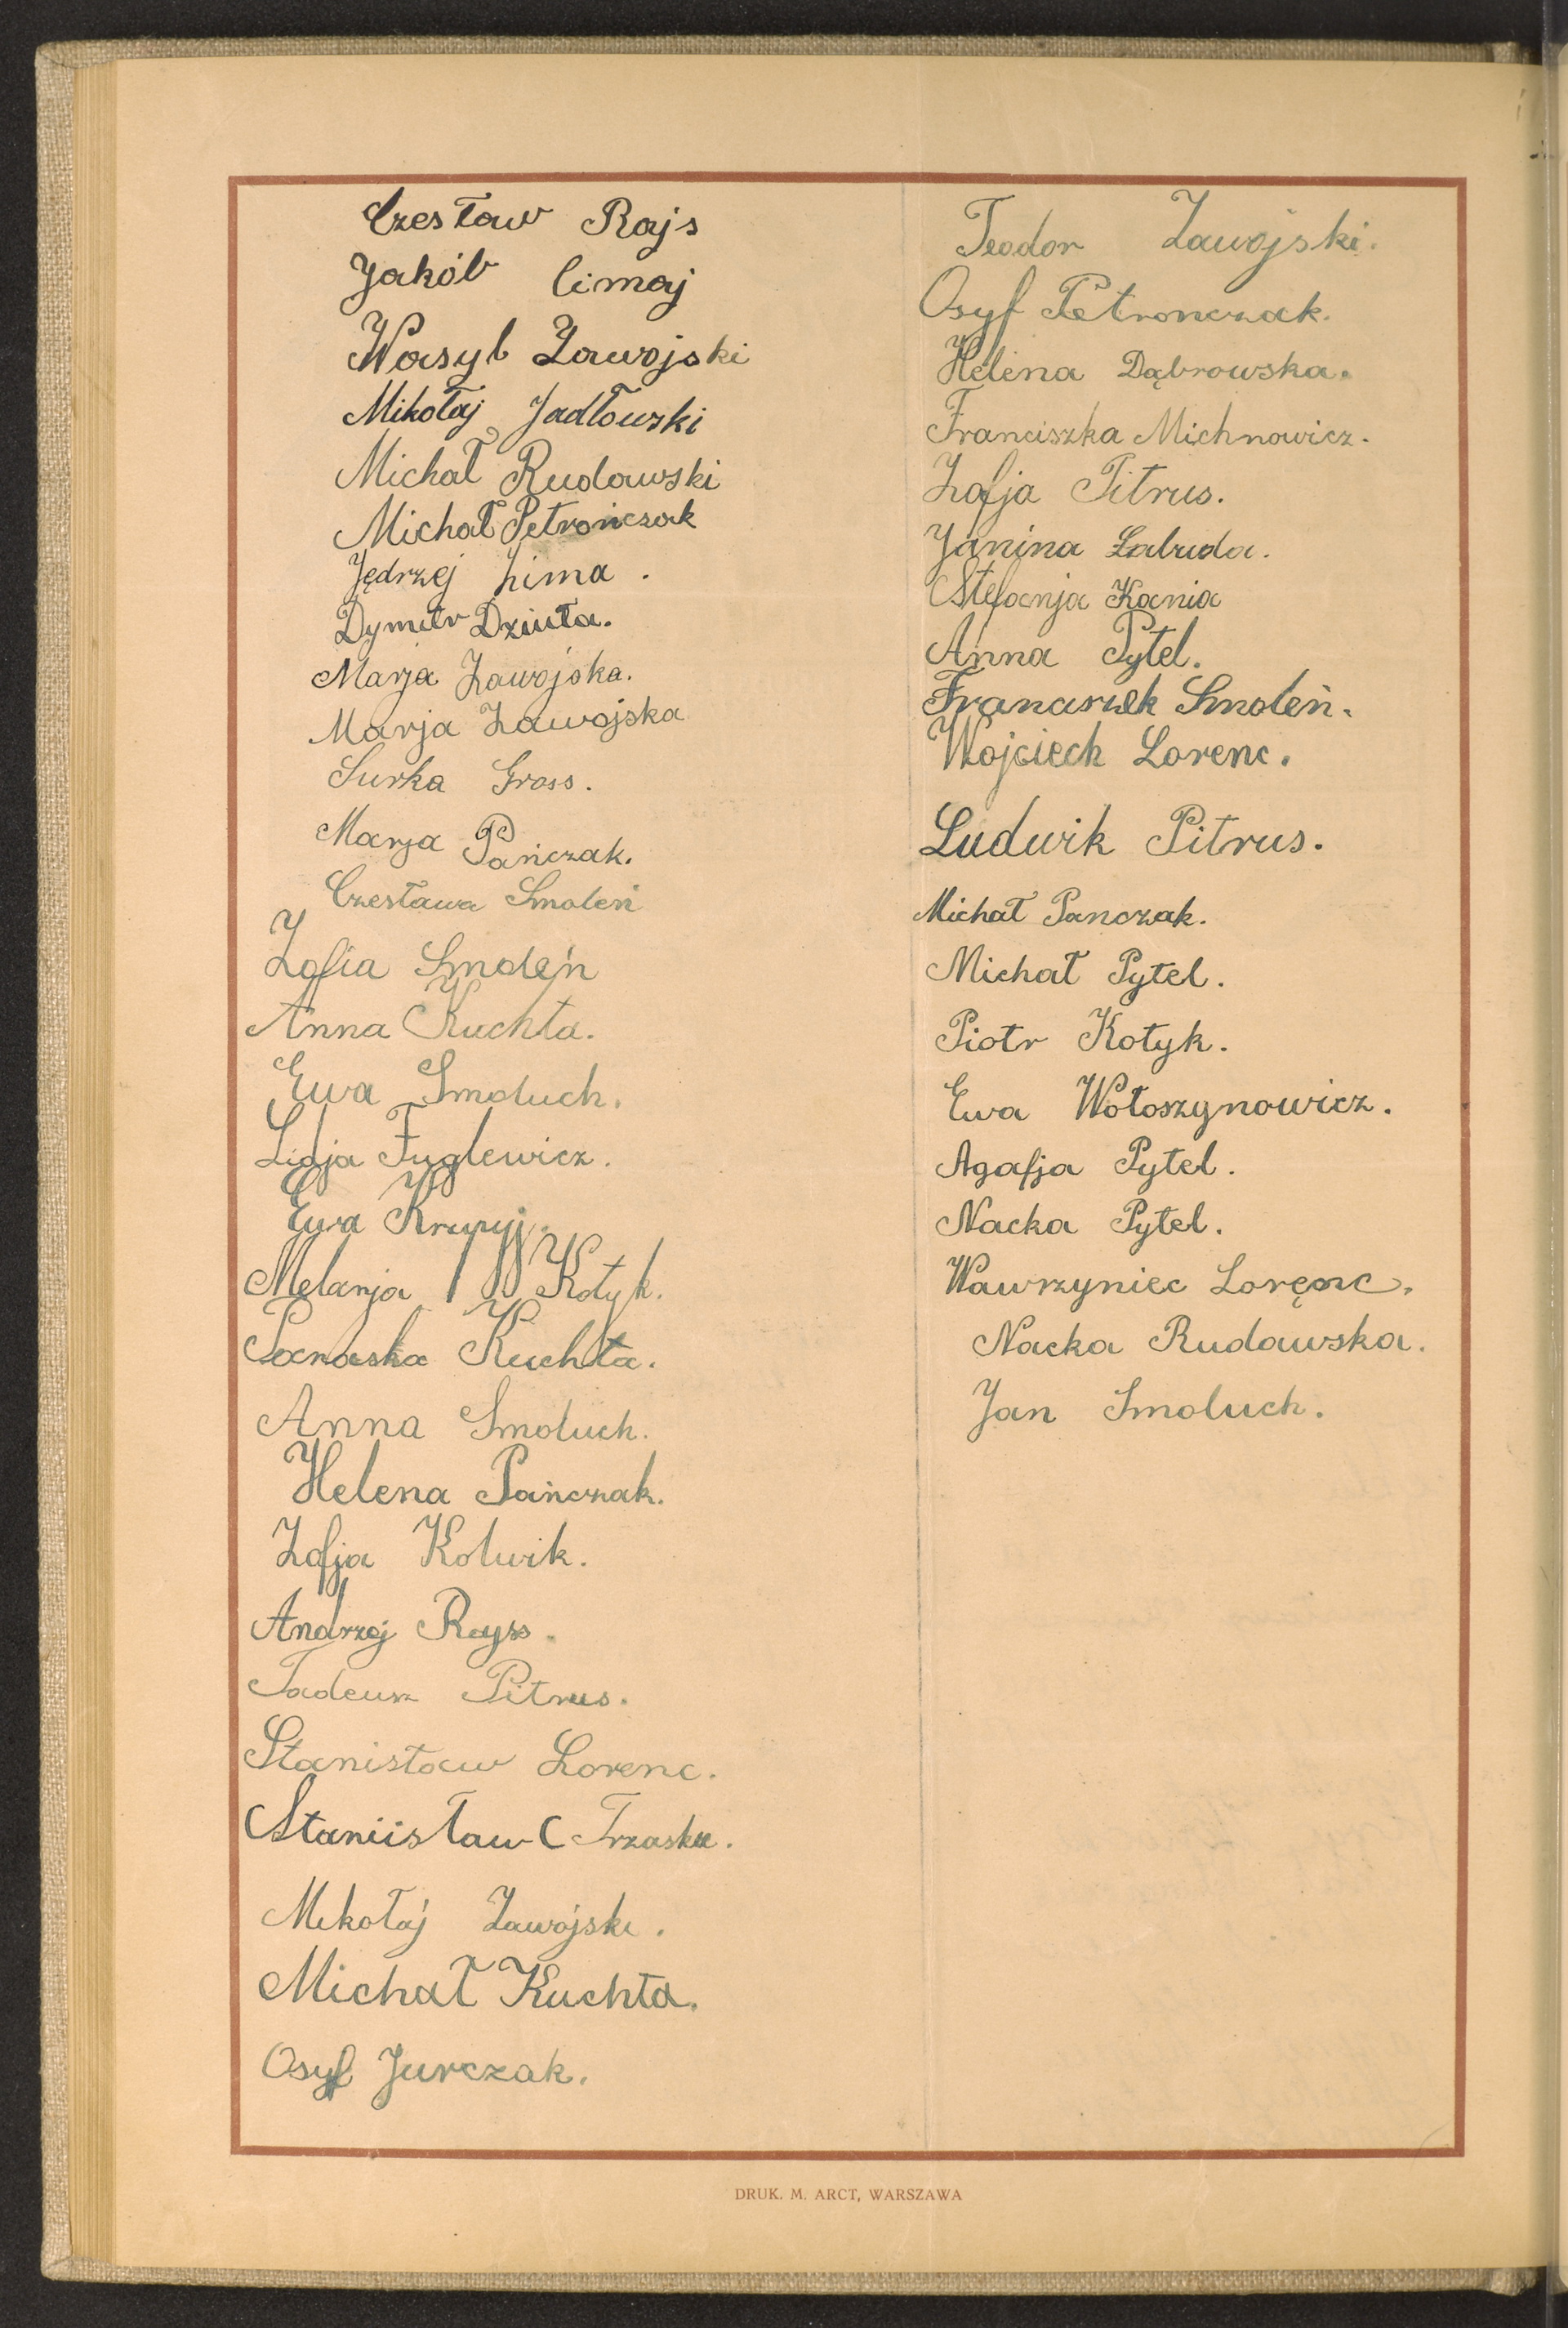 Czesław Rajs
Jakób Cimaj
Wasyl Zawojski
Mikołaj Jadłowski
Michał Rudawski
Michał Petrończak
Jędrzej Zima.
Dymitr Dziuła.
Marja Zawojska.
Marja Zawojska
Surka Gross.
Marja Pańczak.
Czesława Smoleń
Zofia Smoleń
Anna Kuchta.
Ewa Smoluch.
Lidja Fuglewicz.
Ewa
Melanja Kotyk.
Paraska Kuchta.
Anna Smoluch.
Helena Pańczak.
Zofja Kolwik.
Andrzej Rayss.
Tadeusz Pitrus.
Stanisław Lorenc.
Staniisław Trzaska.
Mikołaj Zawojski.
Michał Kuchta.
Osyf Jurczak.
Teodor Zawojski.
Osyf Petronczak.
Helena Dąbrowska.
Franciszka Michnowicz.
Zofja Pitrus.
Janina Łabuda.
Stefanja Kania
Anna Pytel.
Franciszek Smoleń.
Wojciech Lorenc.
Ludwik Pitrus.
Michał Panczak.
Michał Pytel.
Piotr Kotyk.
Ewa Wołoszynowicz.
Agafja Pytel.
Nacka Pytel.
Wawrzyniec Loręnc.
Nacka Rudawska.
Jan Smoluch.
DRUK. M. ARCT, WARSZAWA